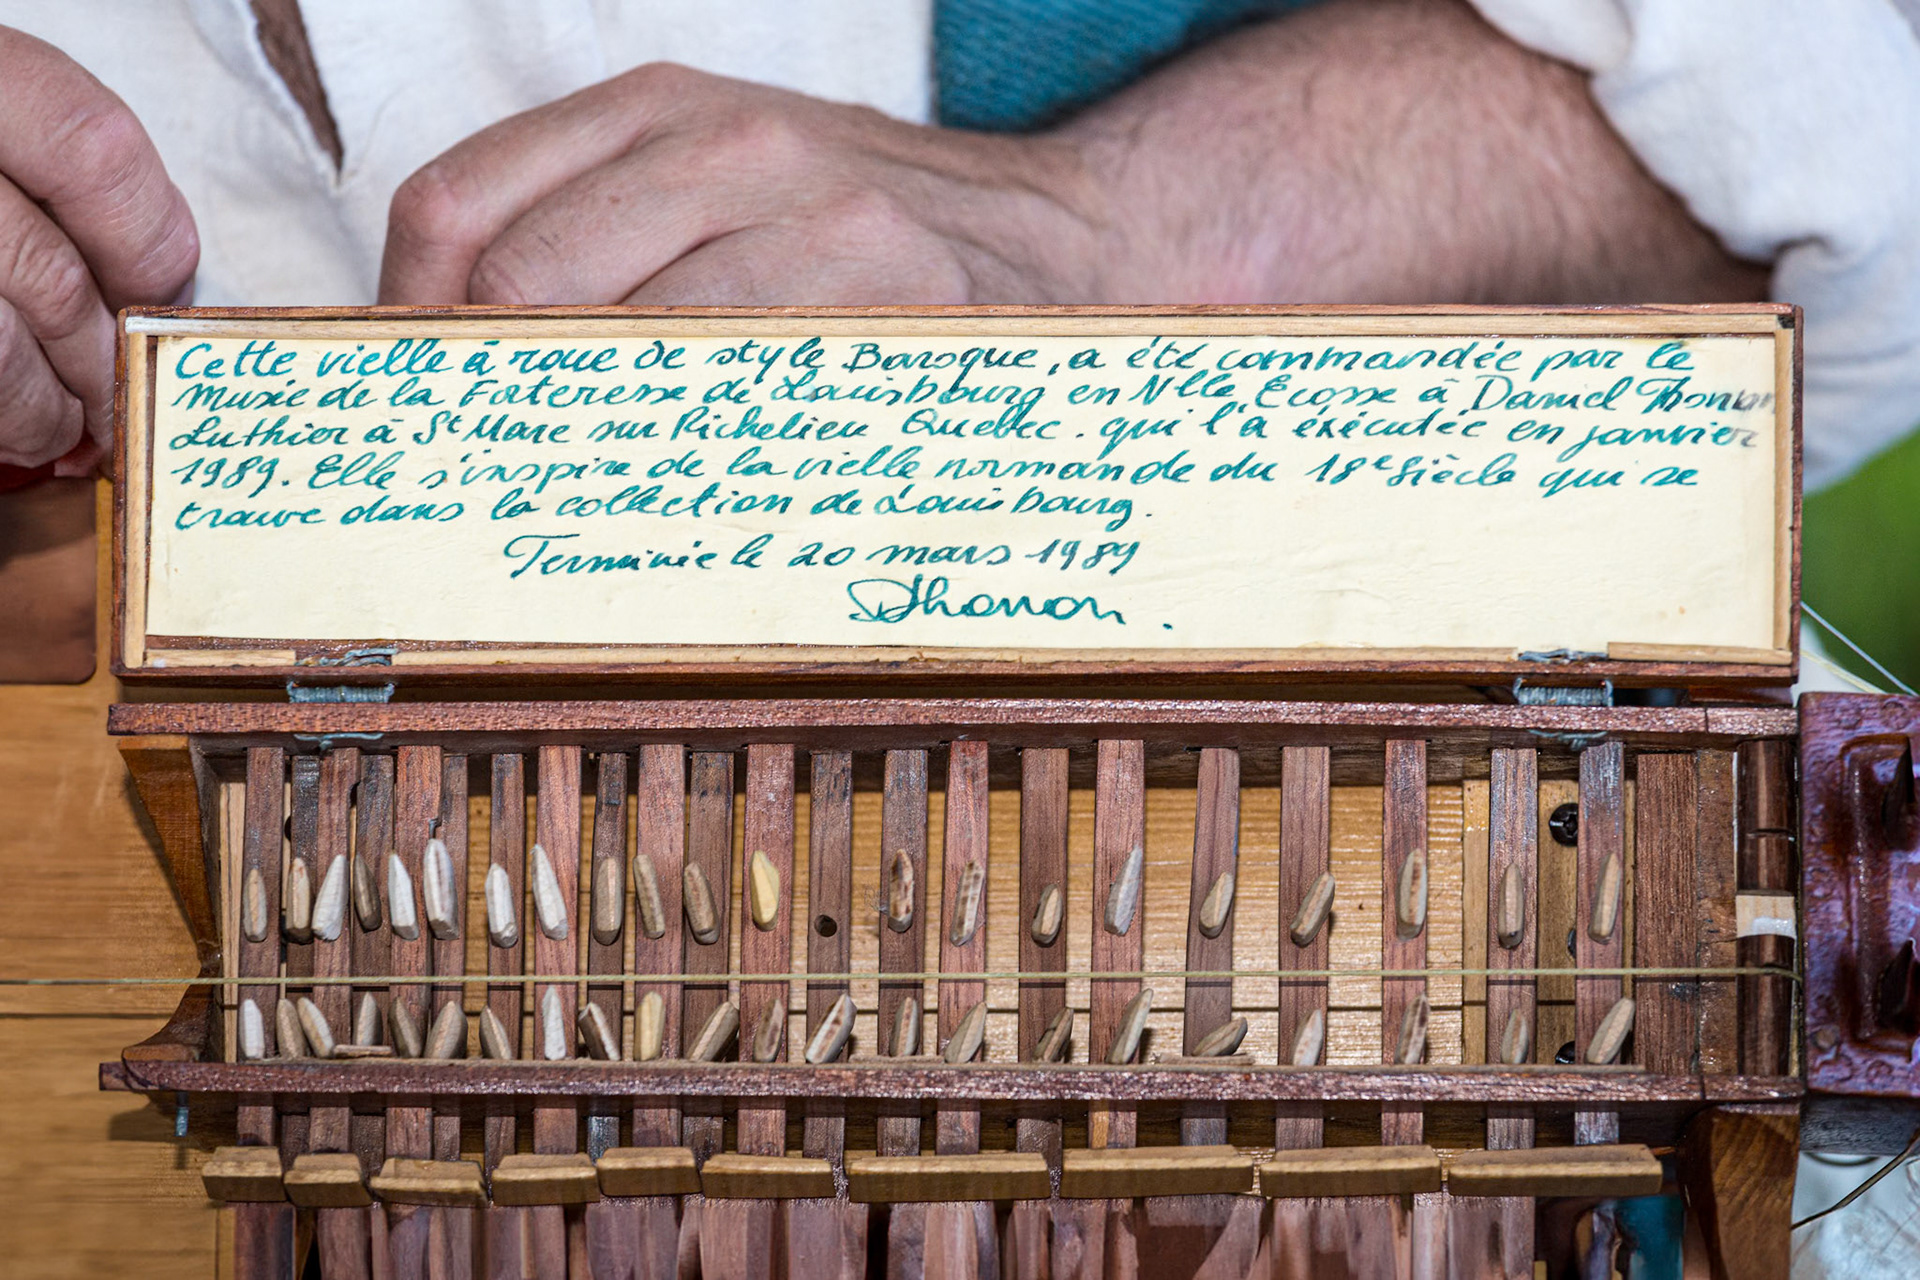 Cette vielle à roue de style Baroque, a été commandée par le
Musée de la Forteresse de Louisbourg en Nlle Ecosse à Daniel Thonon
Luthier à St Marc sur Richelieu Quebec. qui l'a éxécutée en janvier
1989. Elle s'inspire de la vielle normande du 18e Siècle qui se
trouve dans la collection de Louisbourg.
Terminée le 20 mars 1989
DThonon.